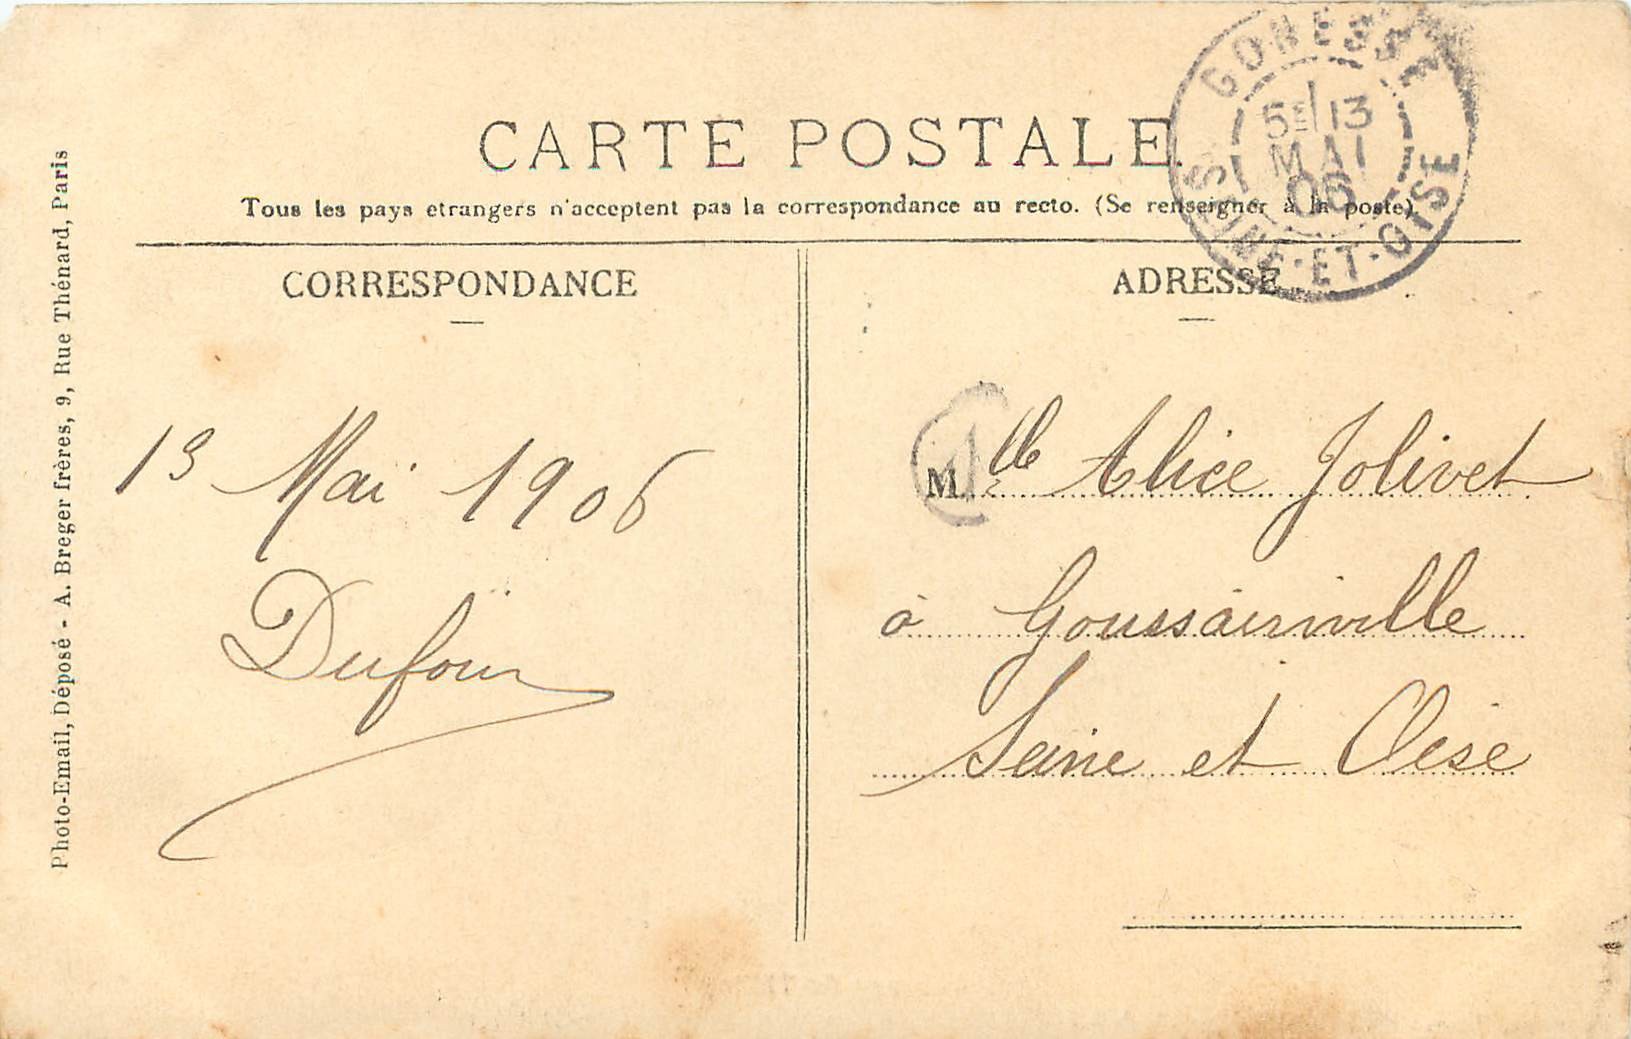 CARTE POSTALE
Tous les pays etrangers n'acceptent pas la correspondance au recto. (Se renseigner à la poste)
GONESSE
5E 13
MAI
06
SEINE-ET-OISE
CORRESPONDANCE
13 Mai 1906
Dufour
ADRESSE
Mlle Alice Jolivet
à Goussainville
Seine et Oise
Photo-Email, Déposé - A. Breger frères, 9, Rue Thénard, Paris